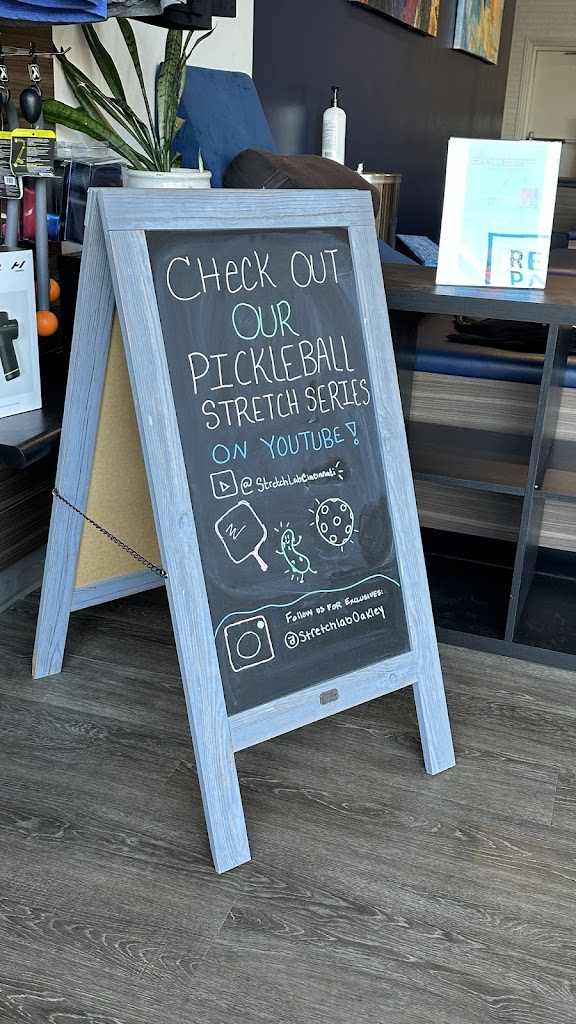 CHECK OUT
OUR
PICKLEBALL
STRETCH SERIES
ON YOUTUBE!
@StretchLabCincinnati
Follow us for Exclusives:
@StretchlabOakley
RE
PA